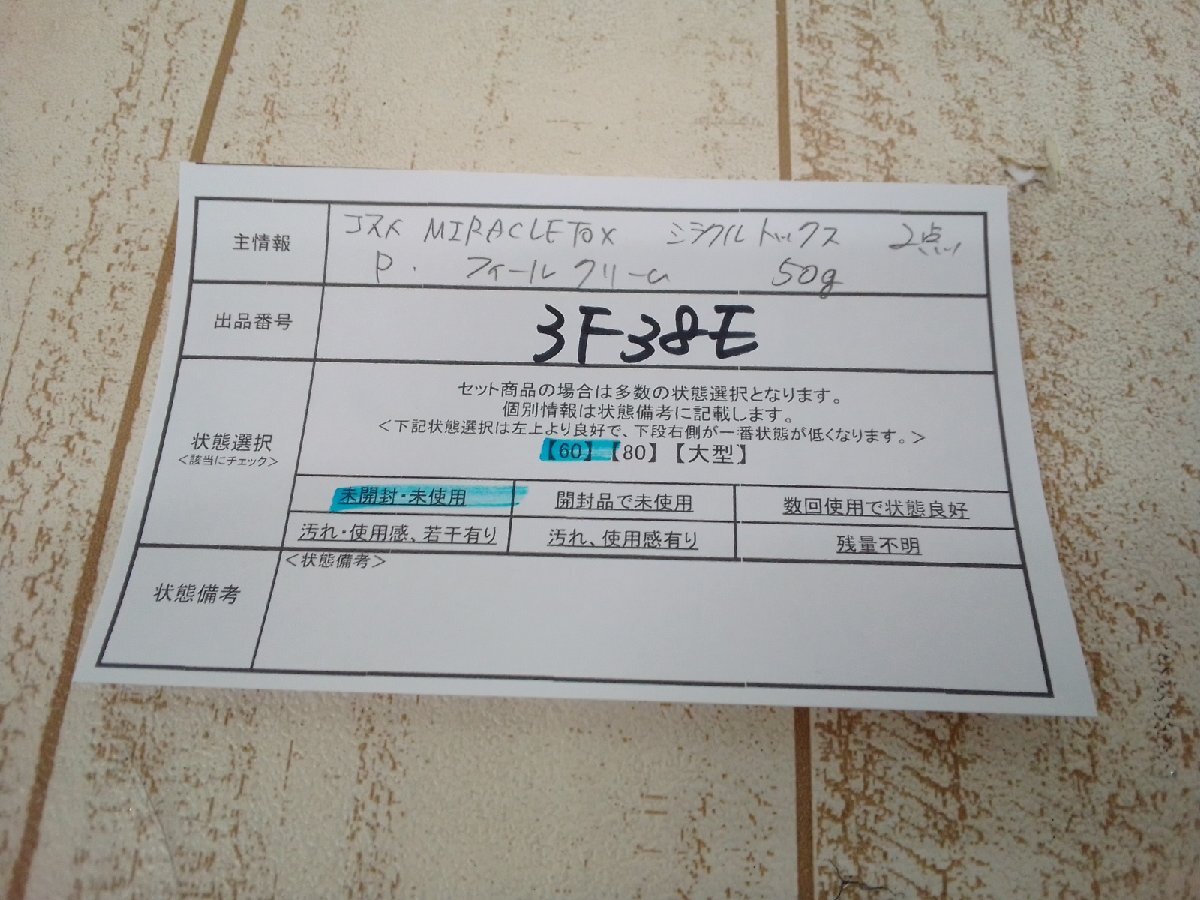 主情報
コスメ MIRACLETOX ミラクルトックス 2点
P. フィールクリーム 50g
出品番号
3F38E
状態選択
<該当にチェック>
セット商品の場合は多数の状態選択となります。
個別情報は状態備考に記載します。
<下記状態選択は左上より良好で、下段右側が一番状態が低くなります。>
【60】【80】【大型】
未開封・未使用 開封品で未使用 数回使用で状態良好
汚れ・使用感、若干有り 汚れ、使用感有り 残量不明
状態備考
<状態備考>